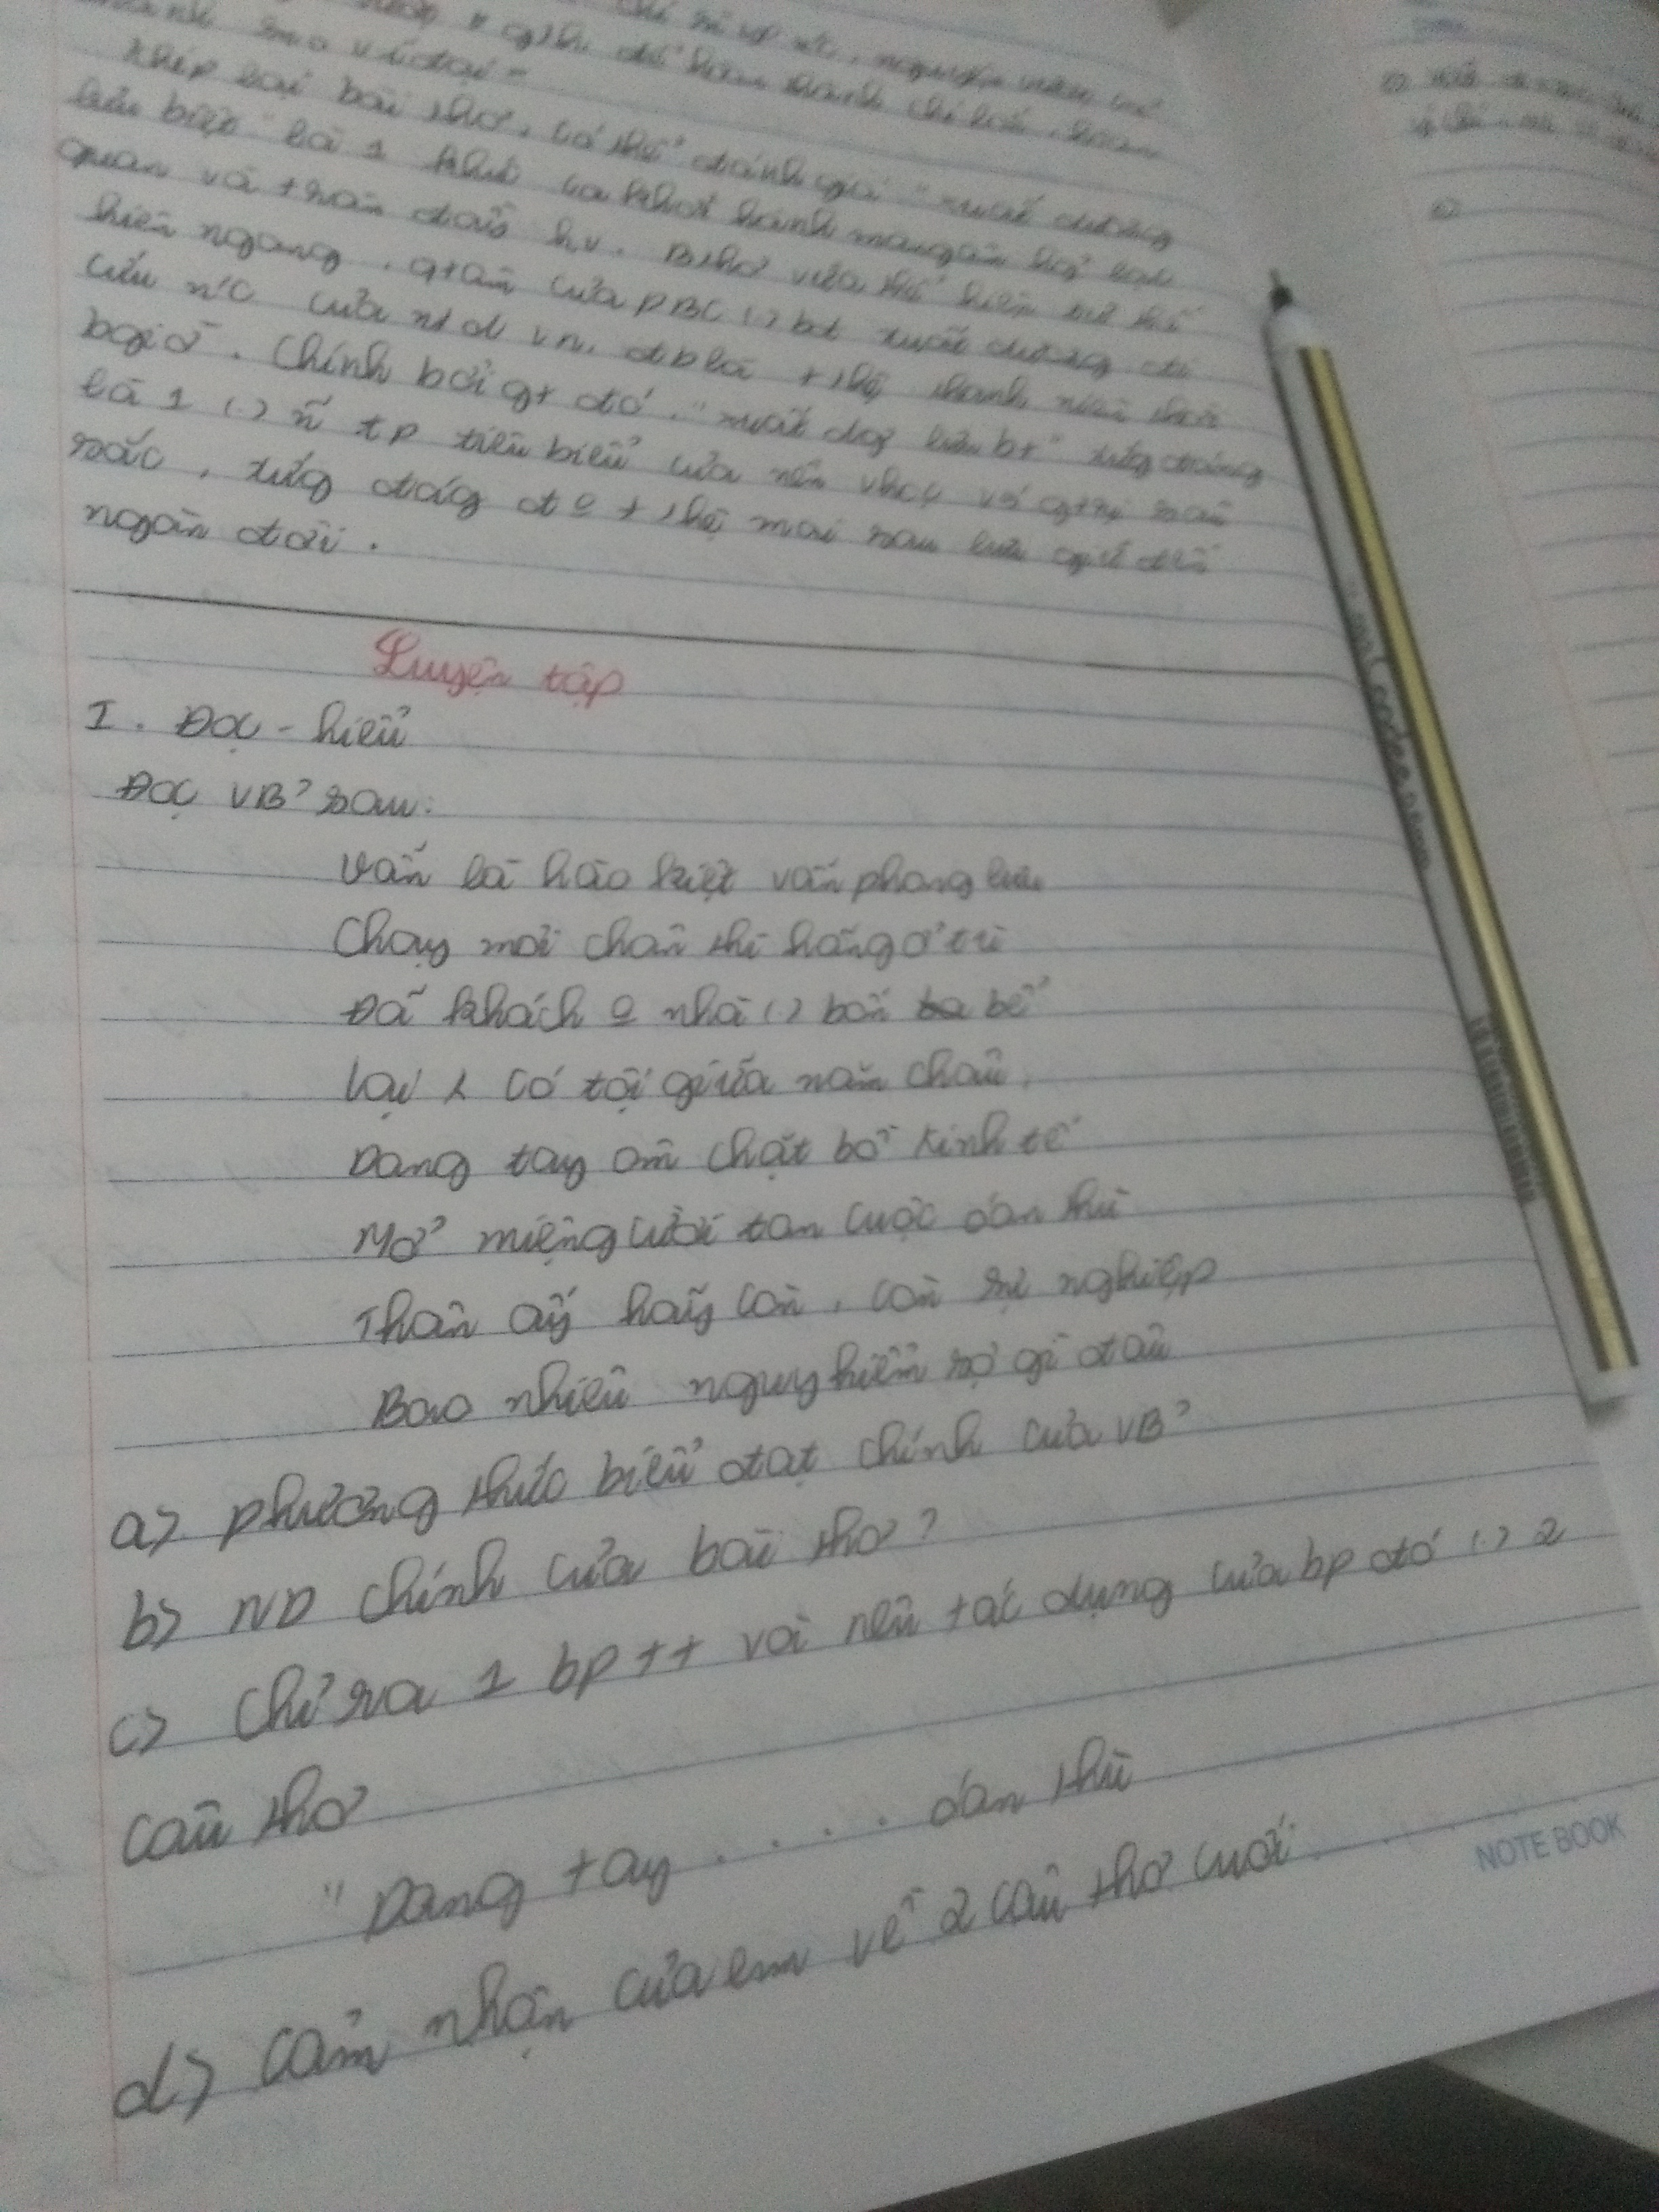 khép lại bài thơ, có thể đánh giá "xuất dương
lưu biệt" là 1 khúc ca khởi hành mang âm
quan và tràn đầy hv. Bthơ vừa thể hiện tư thế
hiên ngang, qtâm của PBC (.) bt xuất dương đi
cứu nc của nd vn, đb là thệ thanh niên
bgiờ. Chính bởi gt đó, "xuất dg lưu bt" xứg đáng
là 1 (.) ~ tp tiêu biểu của nền vhcm vs gtrị sâu
sắc, xứg đág đc thệ mai sau lưu giữ đến
ngàn đời.
Luyện tập
I. Đọc - hiểu
Đọc VB' sau:
Vẫn là hào kiệt vẫn phong lưu
Chạy mỏi chân thì hẵng ở tù
Đã khách o nhà (.) bốn bể
Lại x có tội giữa năm châu.
Dang tay ôm chặt bồ kinh tế
Mở miệng cười tan cuộc oán thù
Thân ấy hãy còn, còn sự nghiệp
Bao nhiêu nguy hiểm sợ gì đâu
a) phương thức biểu đạt chính của VB'
b) ND chính của bài thơ?
c) Chỉ ra 1 bptt và nêu tác dụng của bp đó (.) 2
câu thơ
"Dang tay . . . . oán thù
d) Cảm nhận của em về 2 câu thơ cuối.
NOTE BOOK